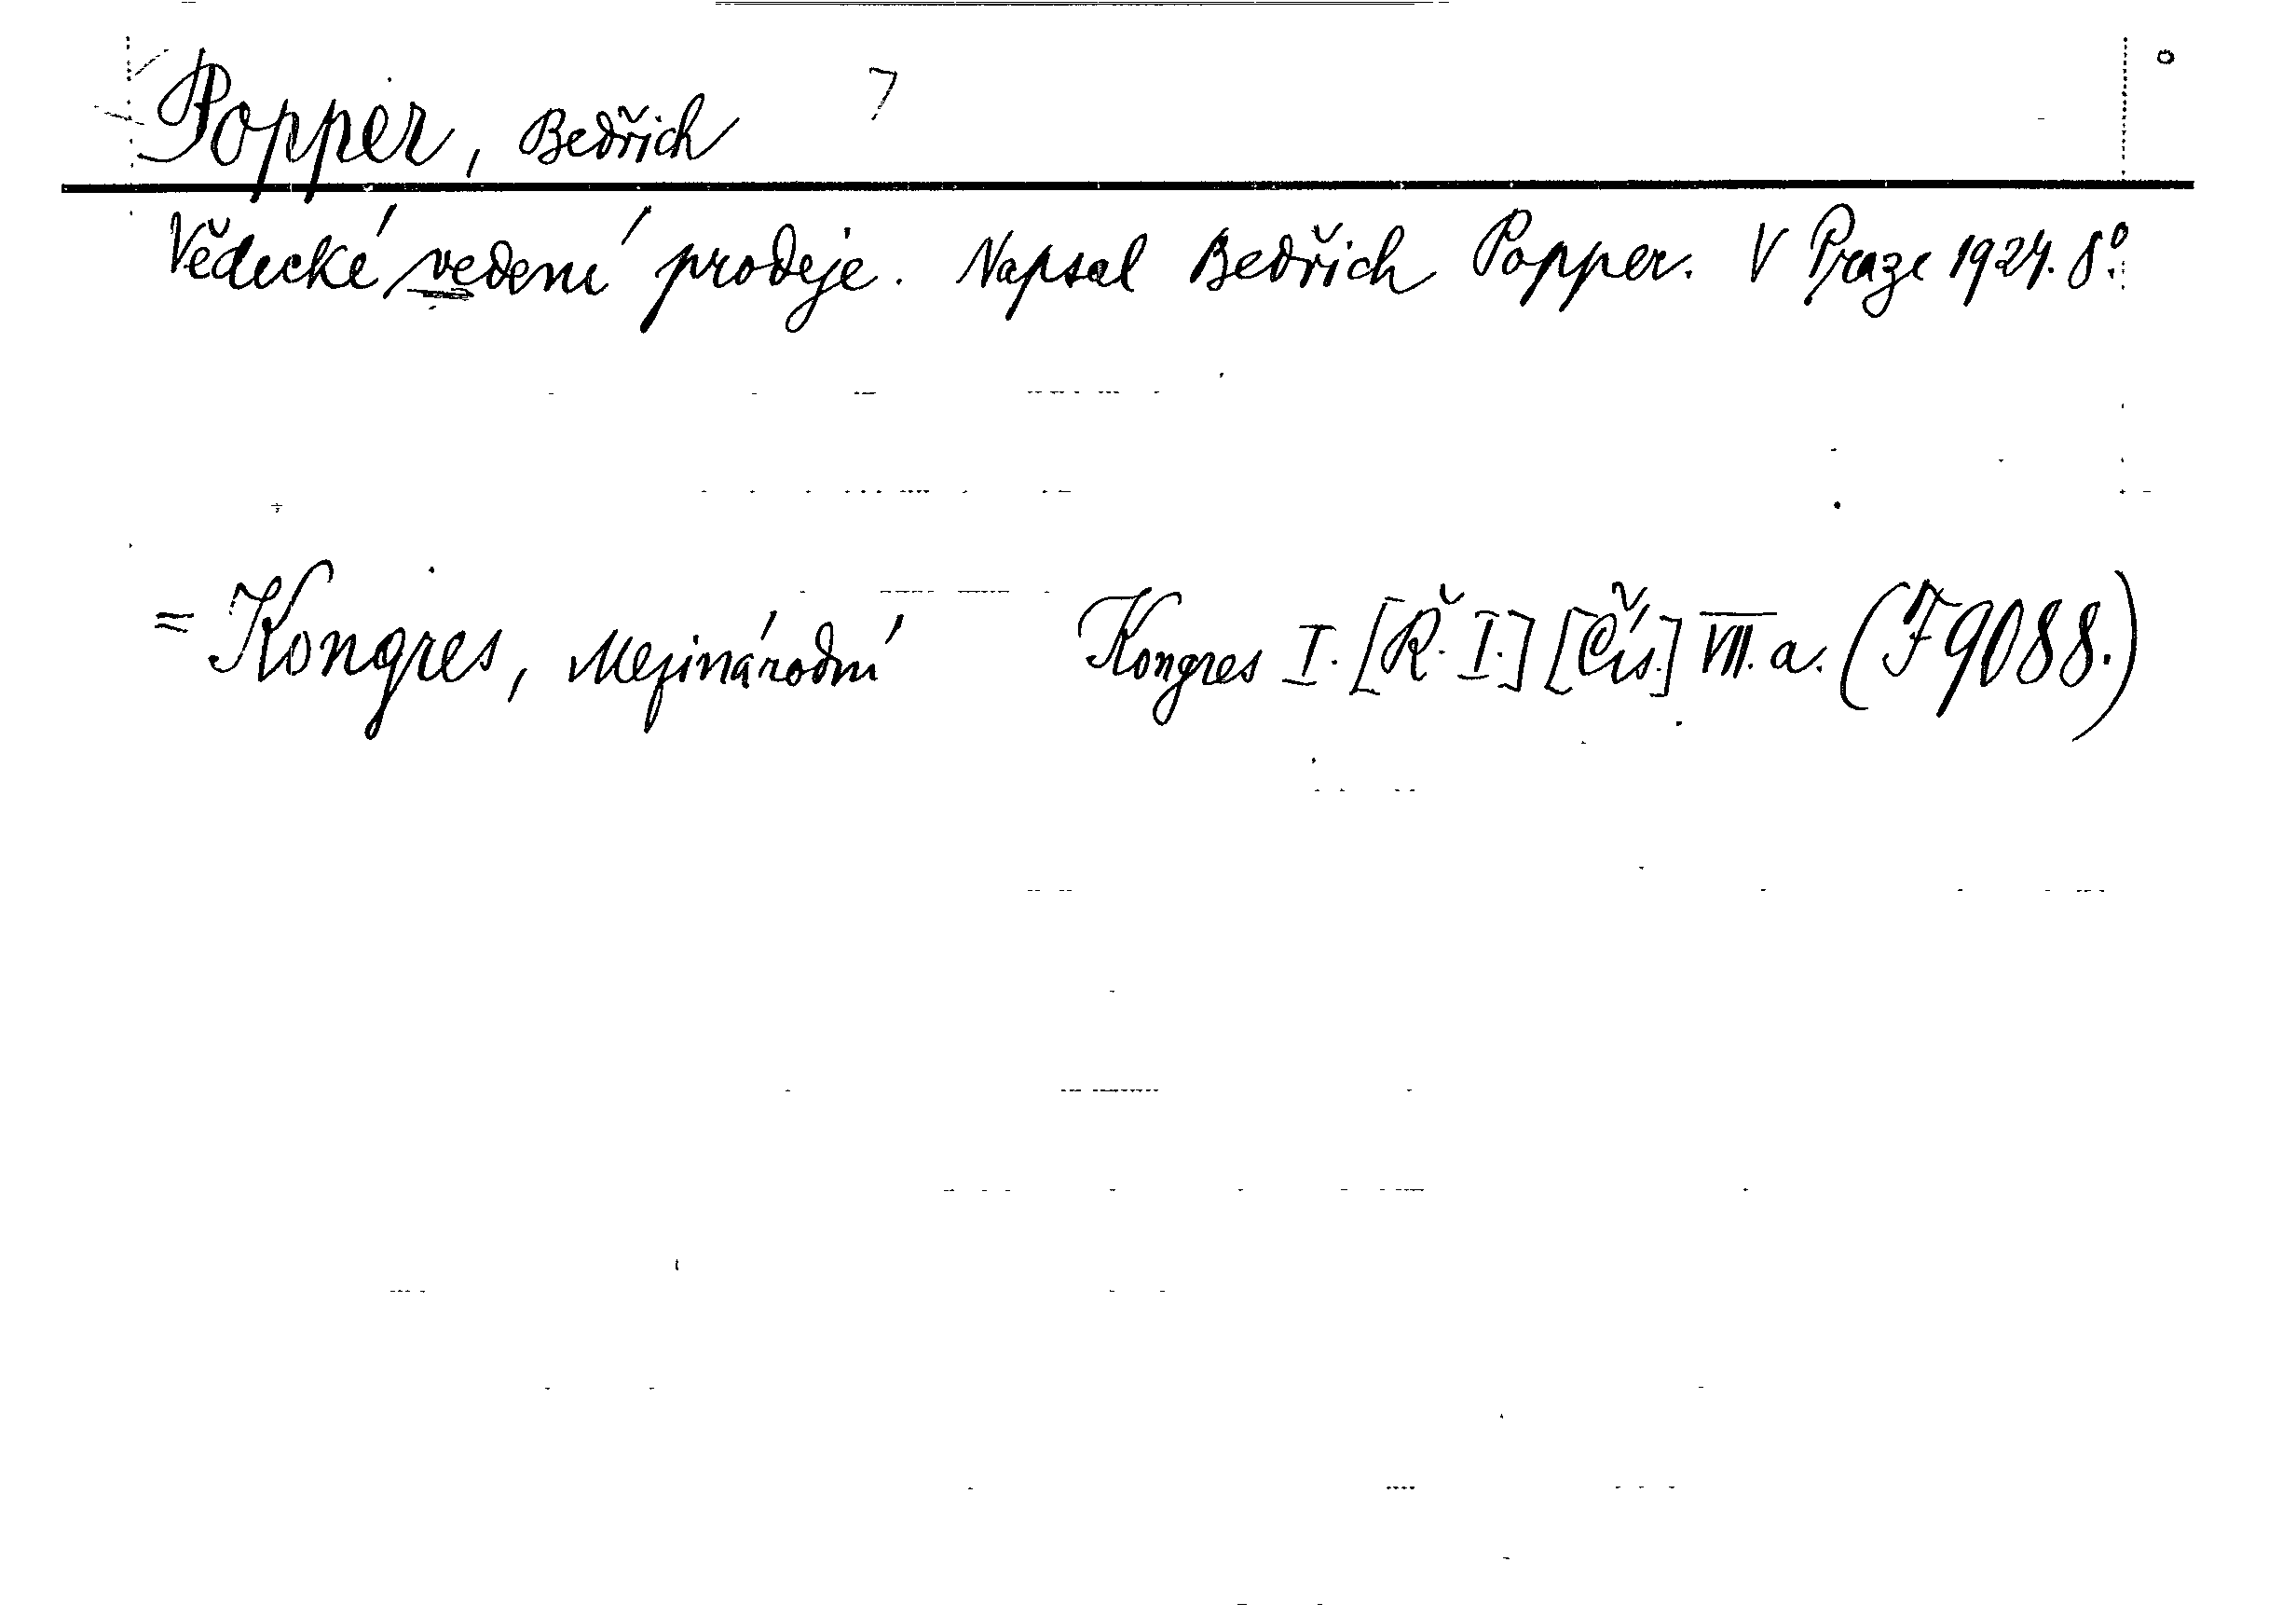 Popper, Bedřich
Vědecké vedení prodeje. Napsal Bedřich Popper. V Praze 1924. 8º.
= Kongres, Mezinárodní Kongres I. [Ř. I.] [Čís.] VII. a. (I 9088.)